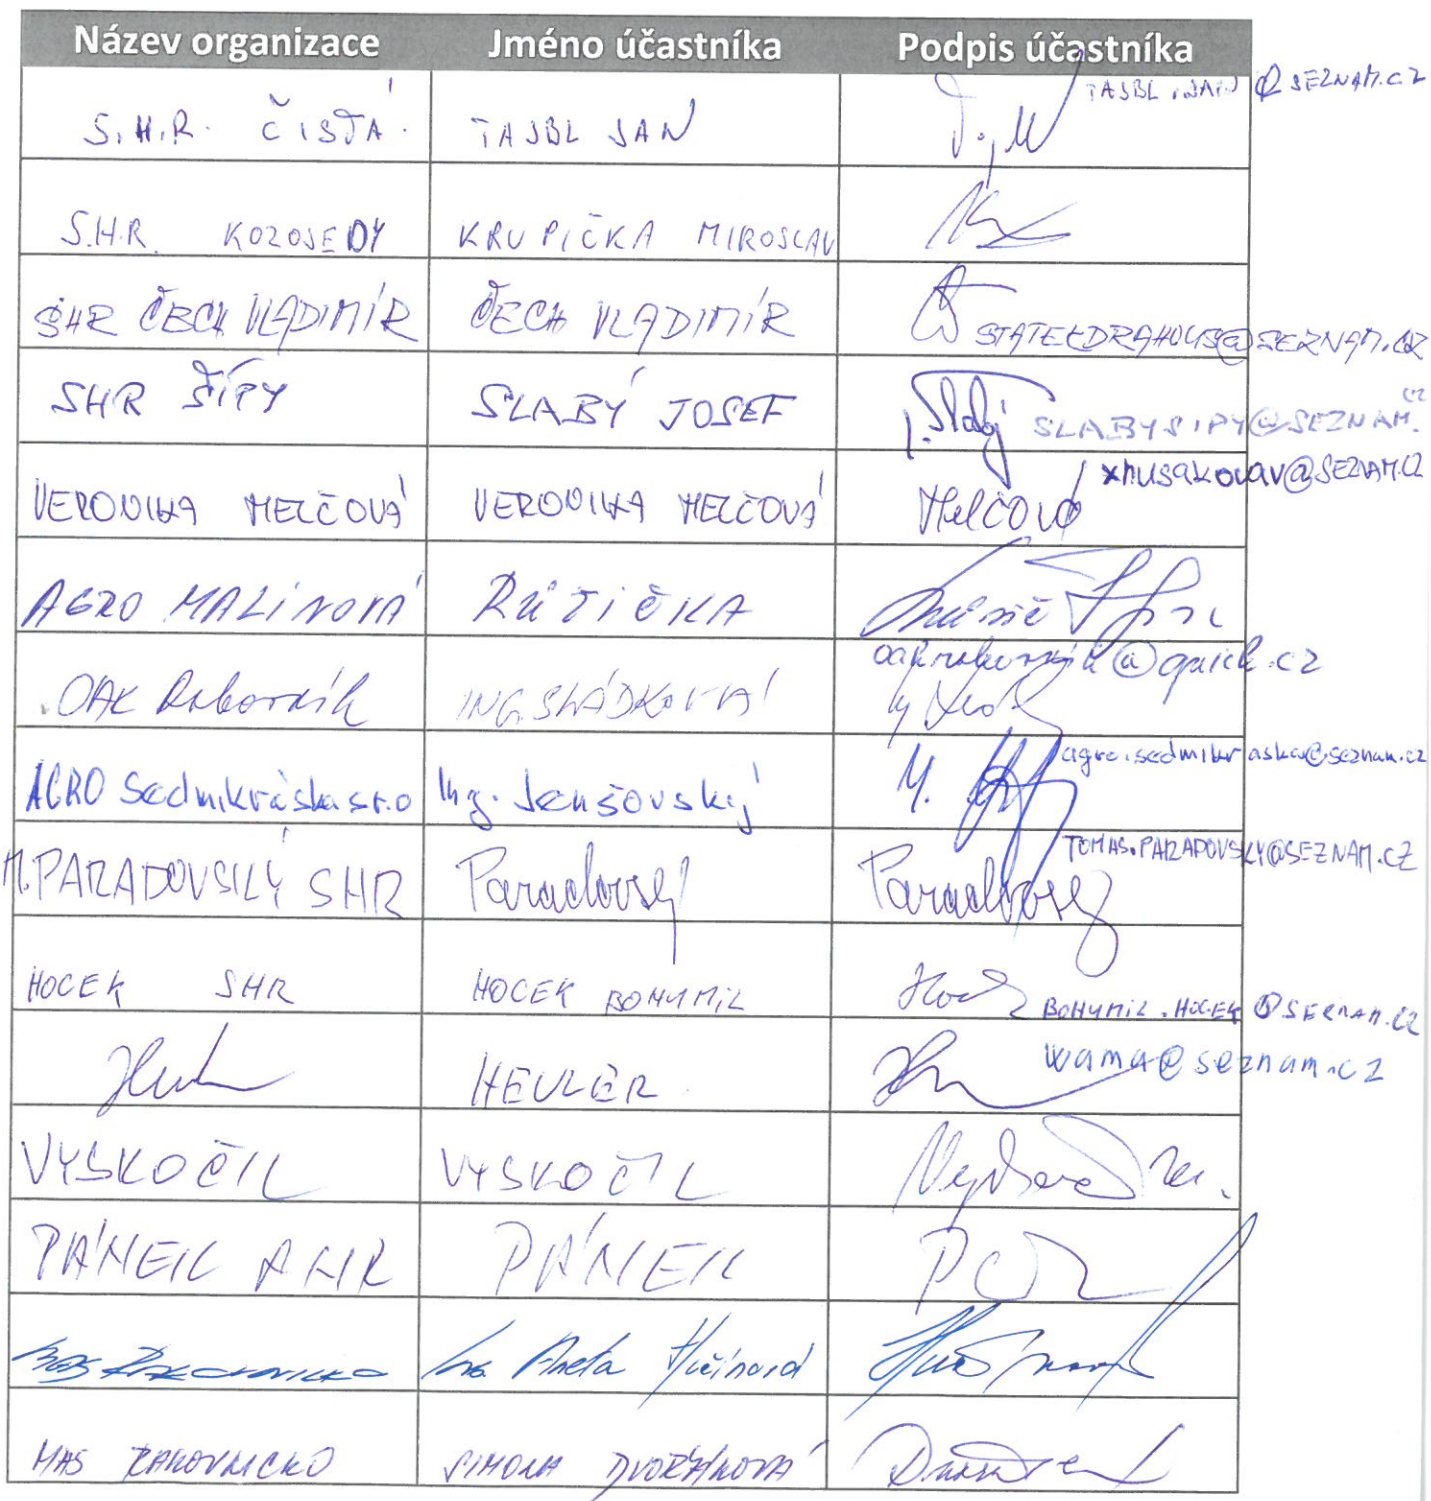 Název organizace Jméno účastníka Podpis účastníka
S.H.R. ČISTÁ TAJBL JAN TAJBL.JAN@SEZNAM.CZ
S.H.R. KOZOJEDY KRUPIČKA MIROSLAV
SHR ČECH VLADIMÍR ČECH VLADIMÍR STATEKDRAHOUS@SEZNAM.CZ
SHR ŠÍPY SLABÝ JOSEF J. Slabý SLABYSIPY@SEZNAM.CZ
VERONIKA MELČOVÁ VERONIKA MELČOVÁ Melčová xhusakovav@SEZNAM.CZ
AGRO MALINOVÁ RŮŽIČKA
OAK Rakovník ING. SLÁDKOVÁ oakrakovnik@quick.cz
AGRO Sedmikráska s.r.o Ing. Jenšovský agro.sedmikraska@seznam.cz
M. PARADOVSKÝ SHR Paradovský Paradovský TOMAS.PARADOVSKY@SEZNAM.CZ
HOCEK SHR HOCEK BOHUMIL BOHUMIL.HOCEK@SEZNAM.CZ
HEVLER wama@seznam.cz
VYSKOČIL VYSKOČIL
PÁNEK PÁNEK
MAS RAKOVNICKO Ing. Aneta
MAS RAKOVNICKO SIMONA DVOŘÁKOVÁ